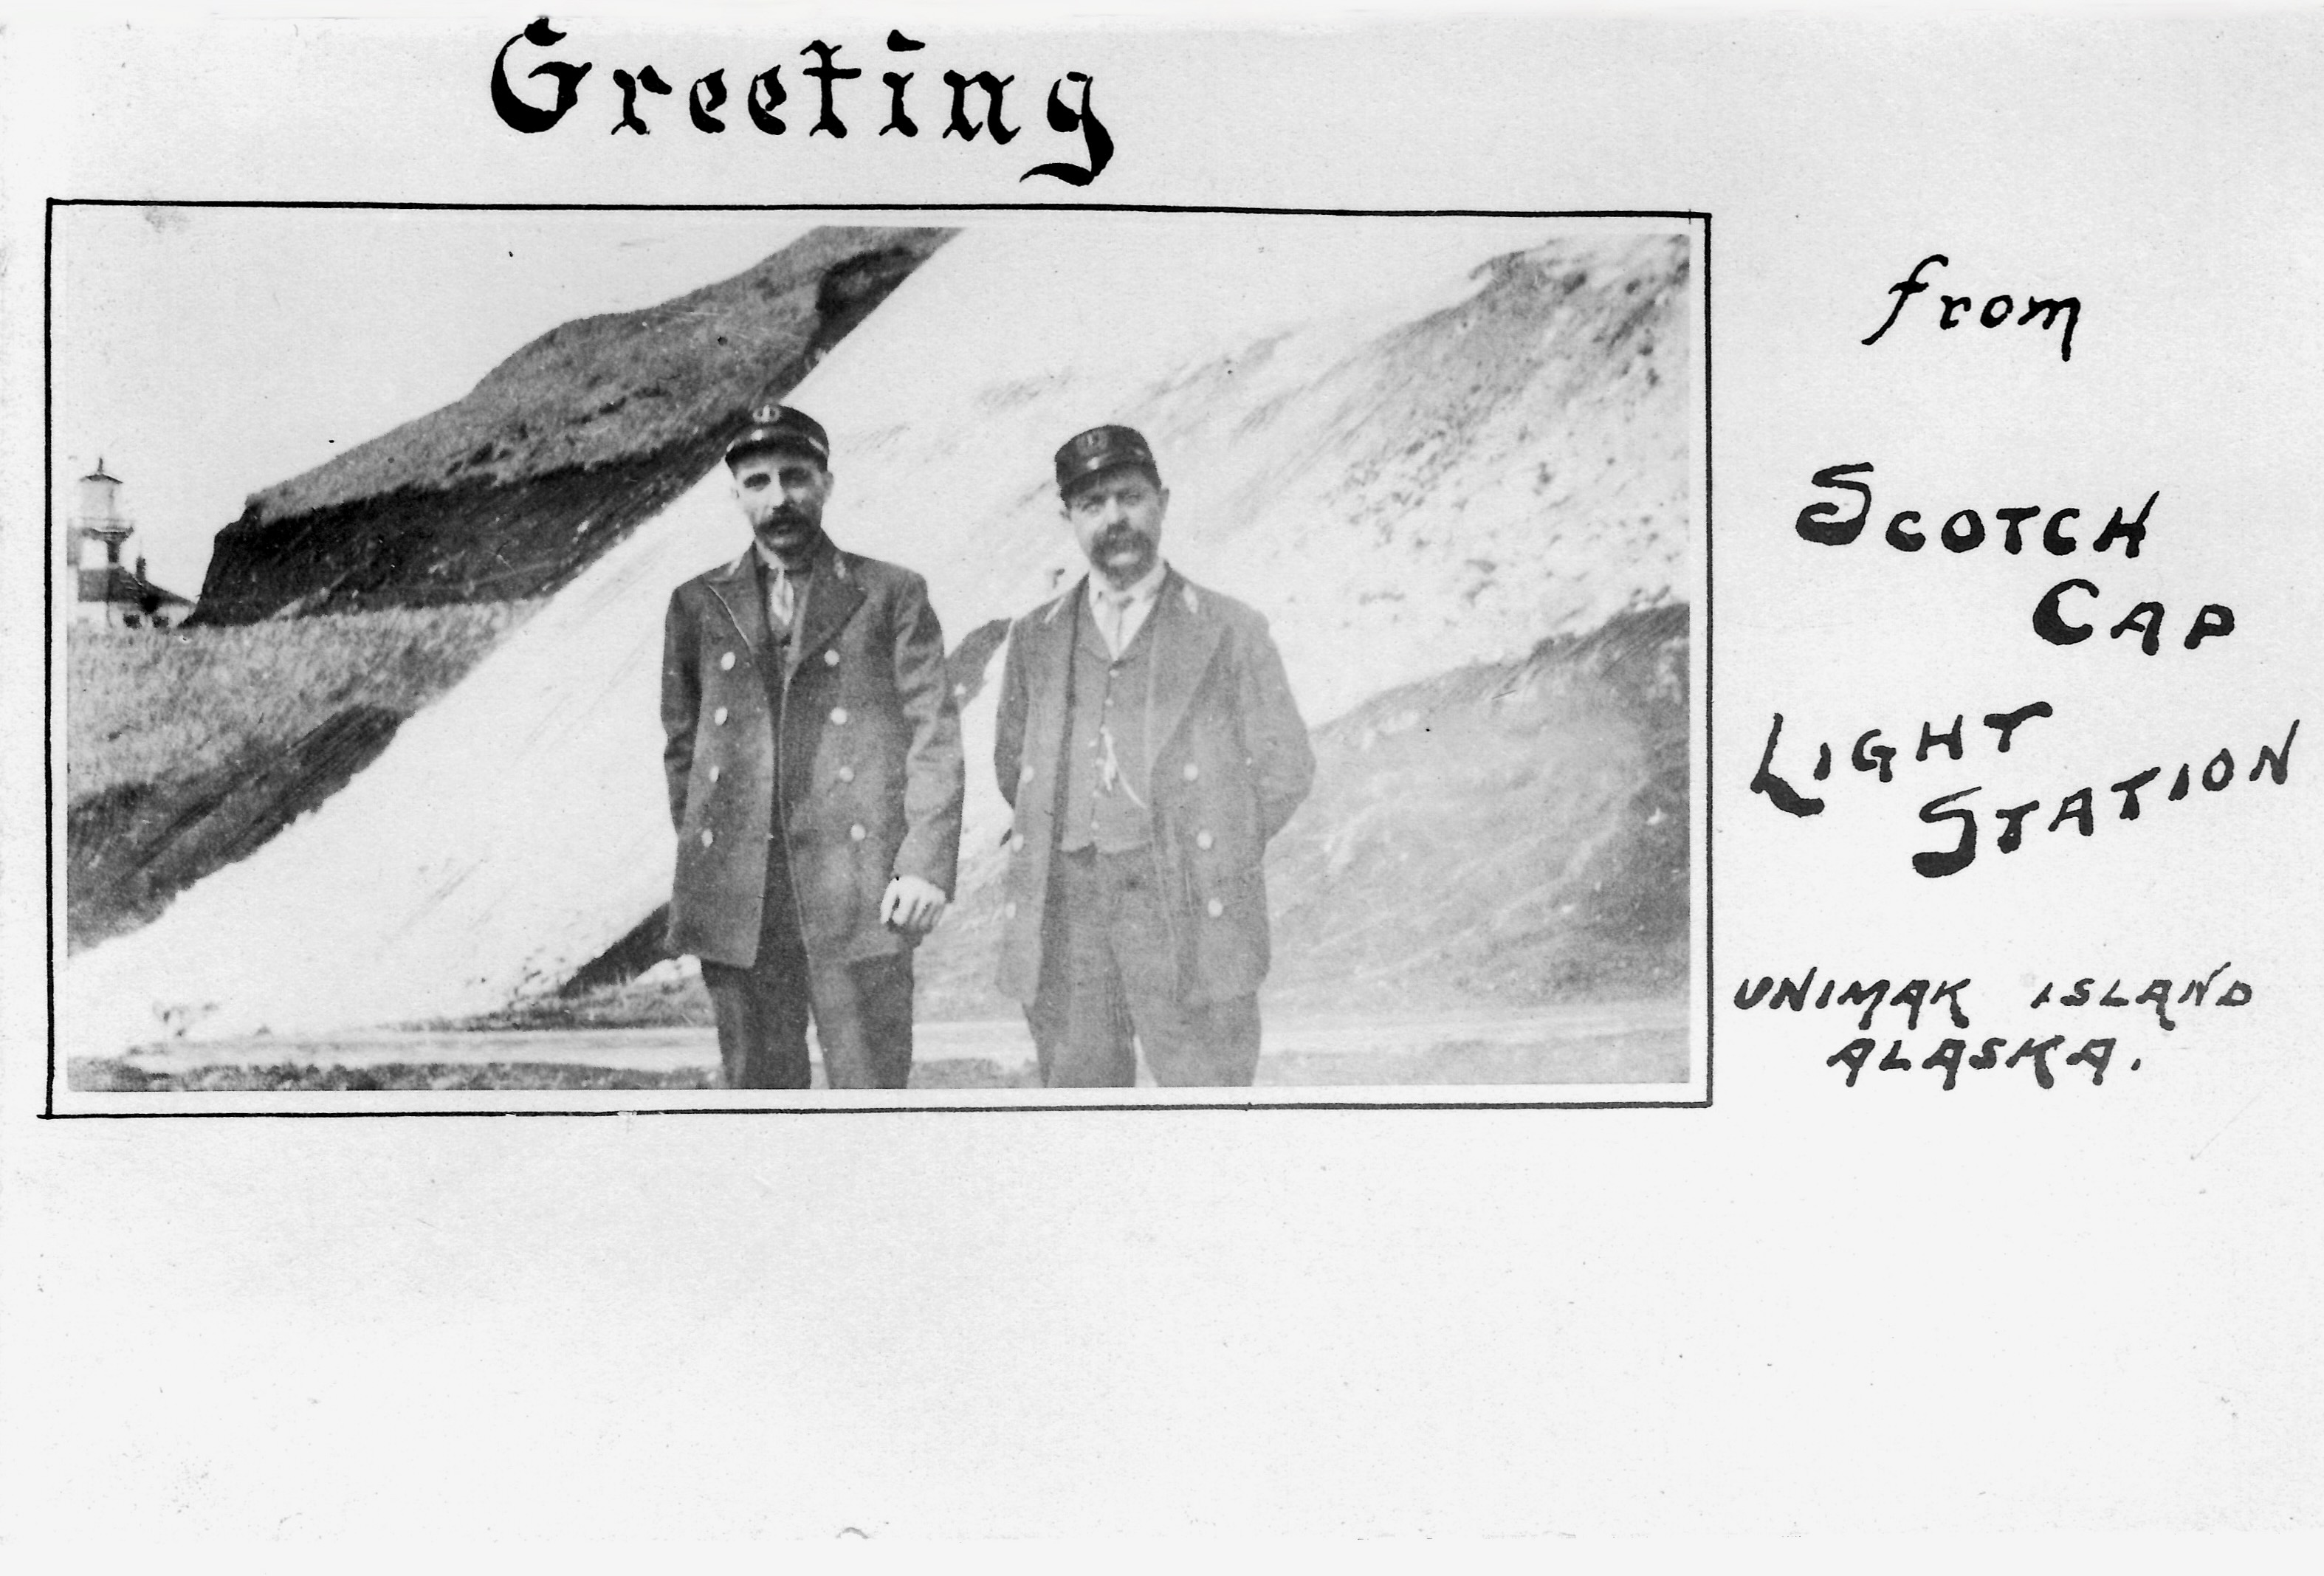 Greeting
from
SCOTCH
CAP
LIGHT
STATION
UNIMAK ISLAND
ALASKA.